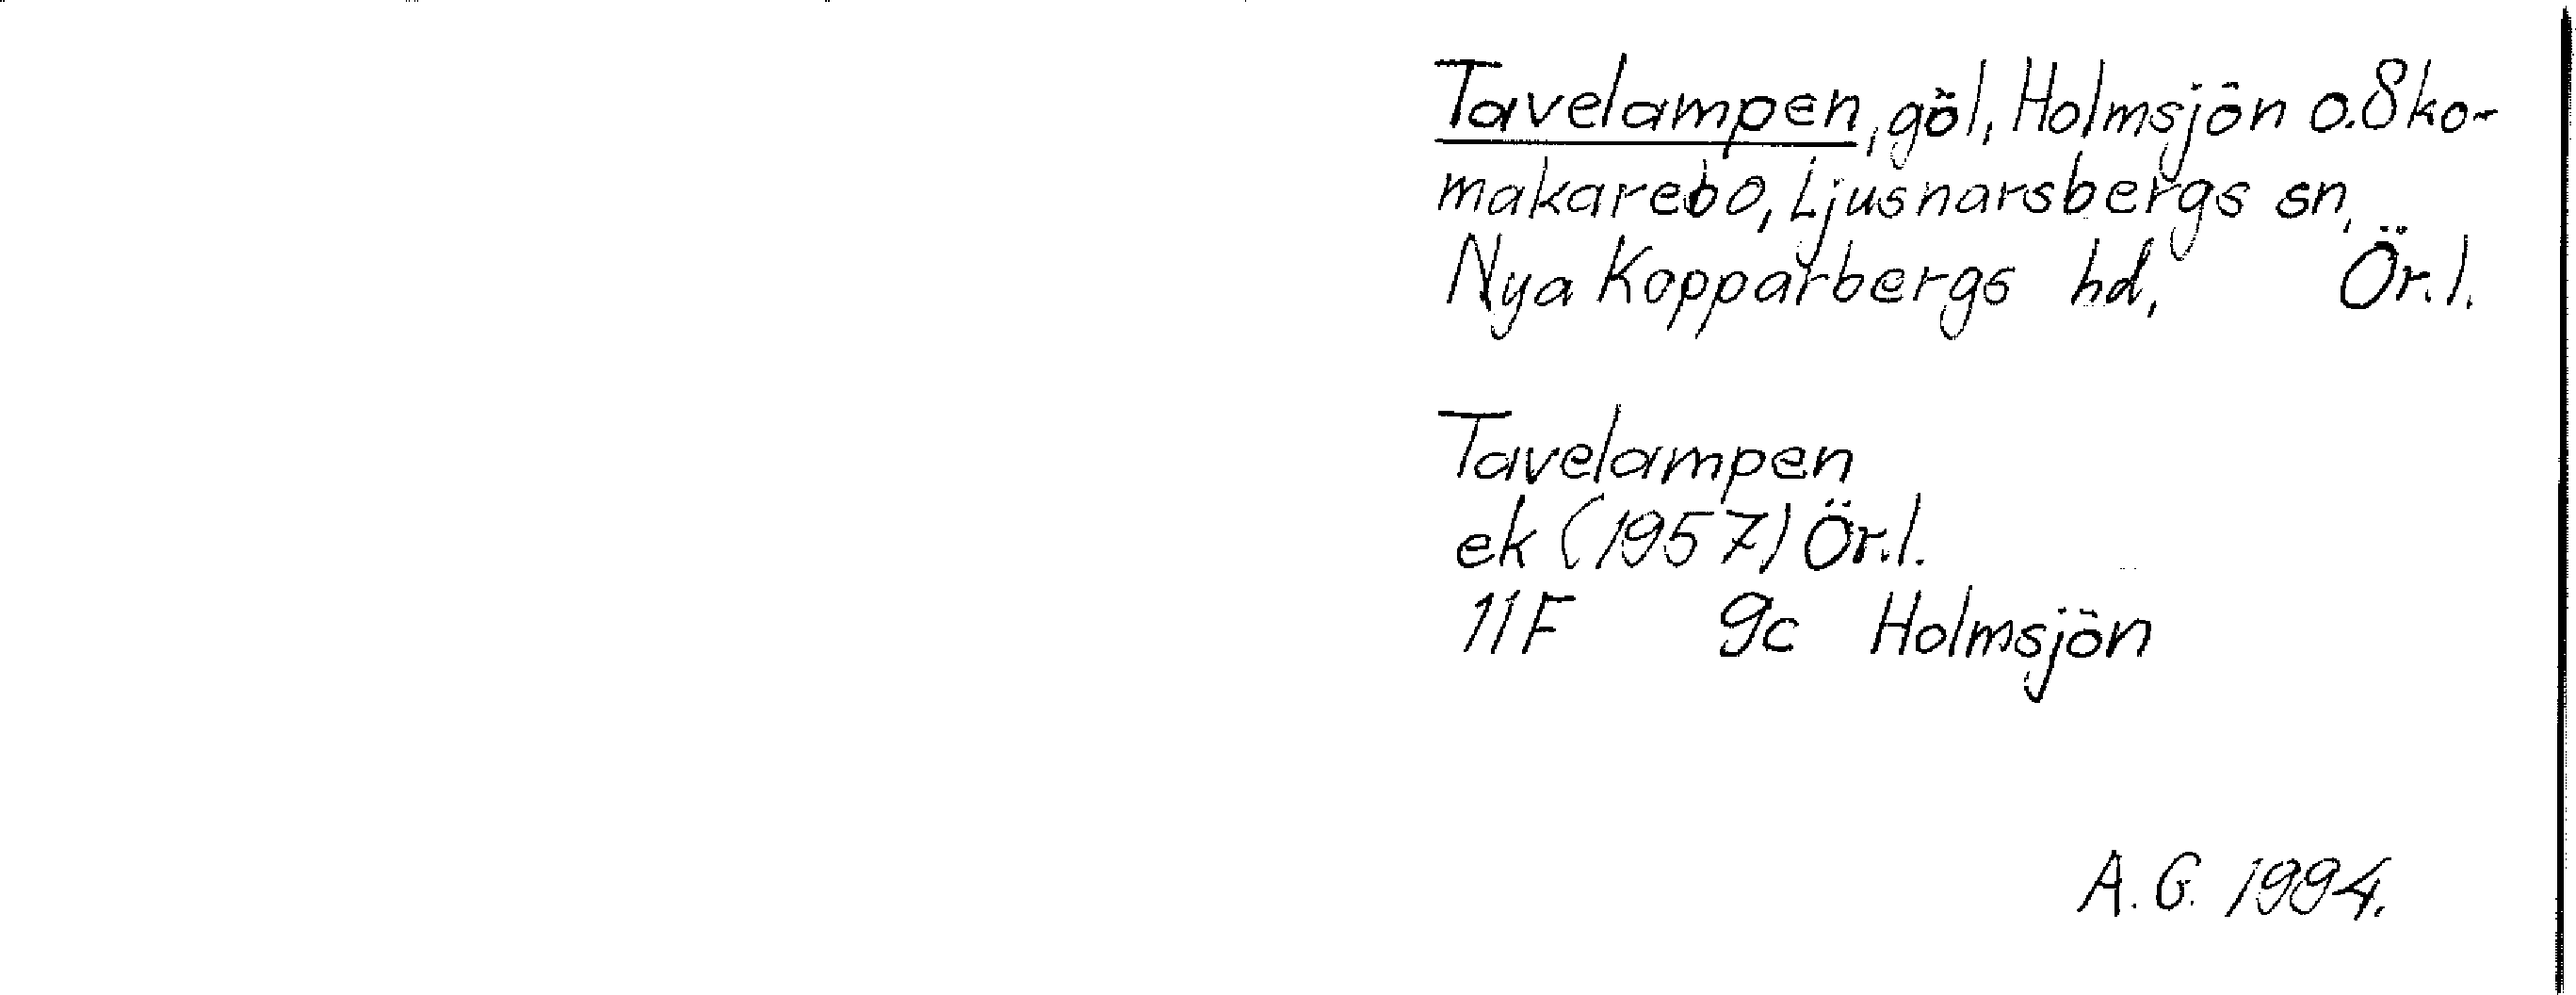 Tavelampen, göl, Holmsjön o. Sko-
makarebo, Ljusnarsbergs sn,
Nya Kopparbergs hd, Ör.l.
Tavelampen
ek (1957) Ör.l.
11F 9c Holmsjön
A.G. 1994.